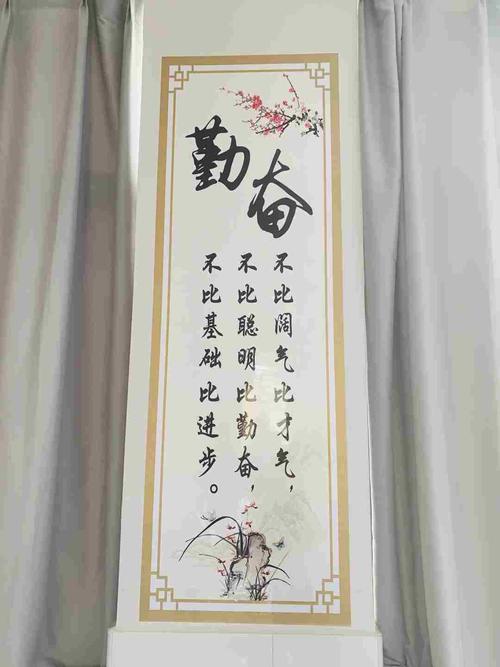 勤奋
不比阔气比才气，
不比聪明比勤奋，
不比基础比进步。